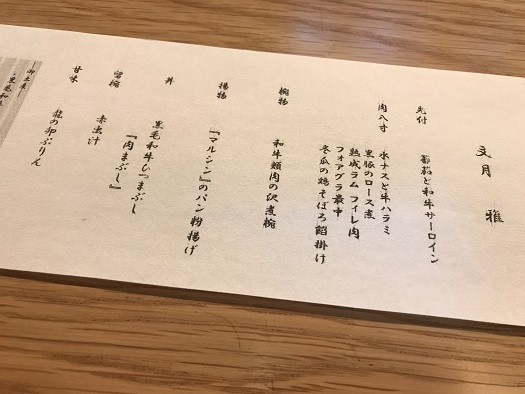 文月 雅
先付
蕃茄と和牛サーロイン
肉八寸
水ナスと牛ハラミ
黒豚のロース煮
熟成ラムフィレ肉
フォアグラ最中
冬瓜の鶏そぼろ餡掛け
椀物
和牛頬肉の沢煮椀
揚物
「マルシン」のパン粉揚げ
丼
黒毛和牛ひつまぶし
『肉まぶし』
留椀
赤出汁
甘味
龍の卵ぷりん
―御土産―
・黒毛和牛